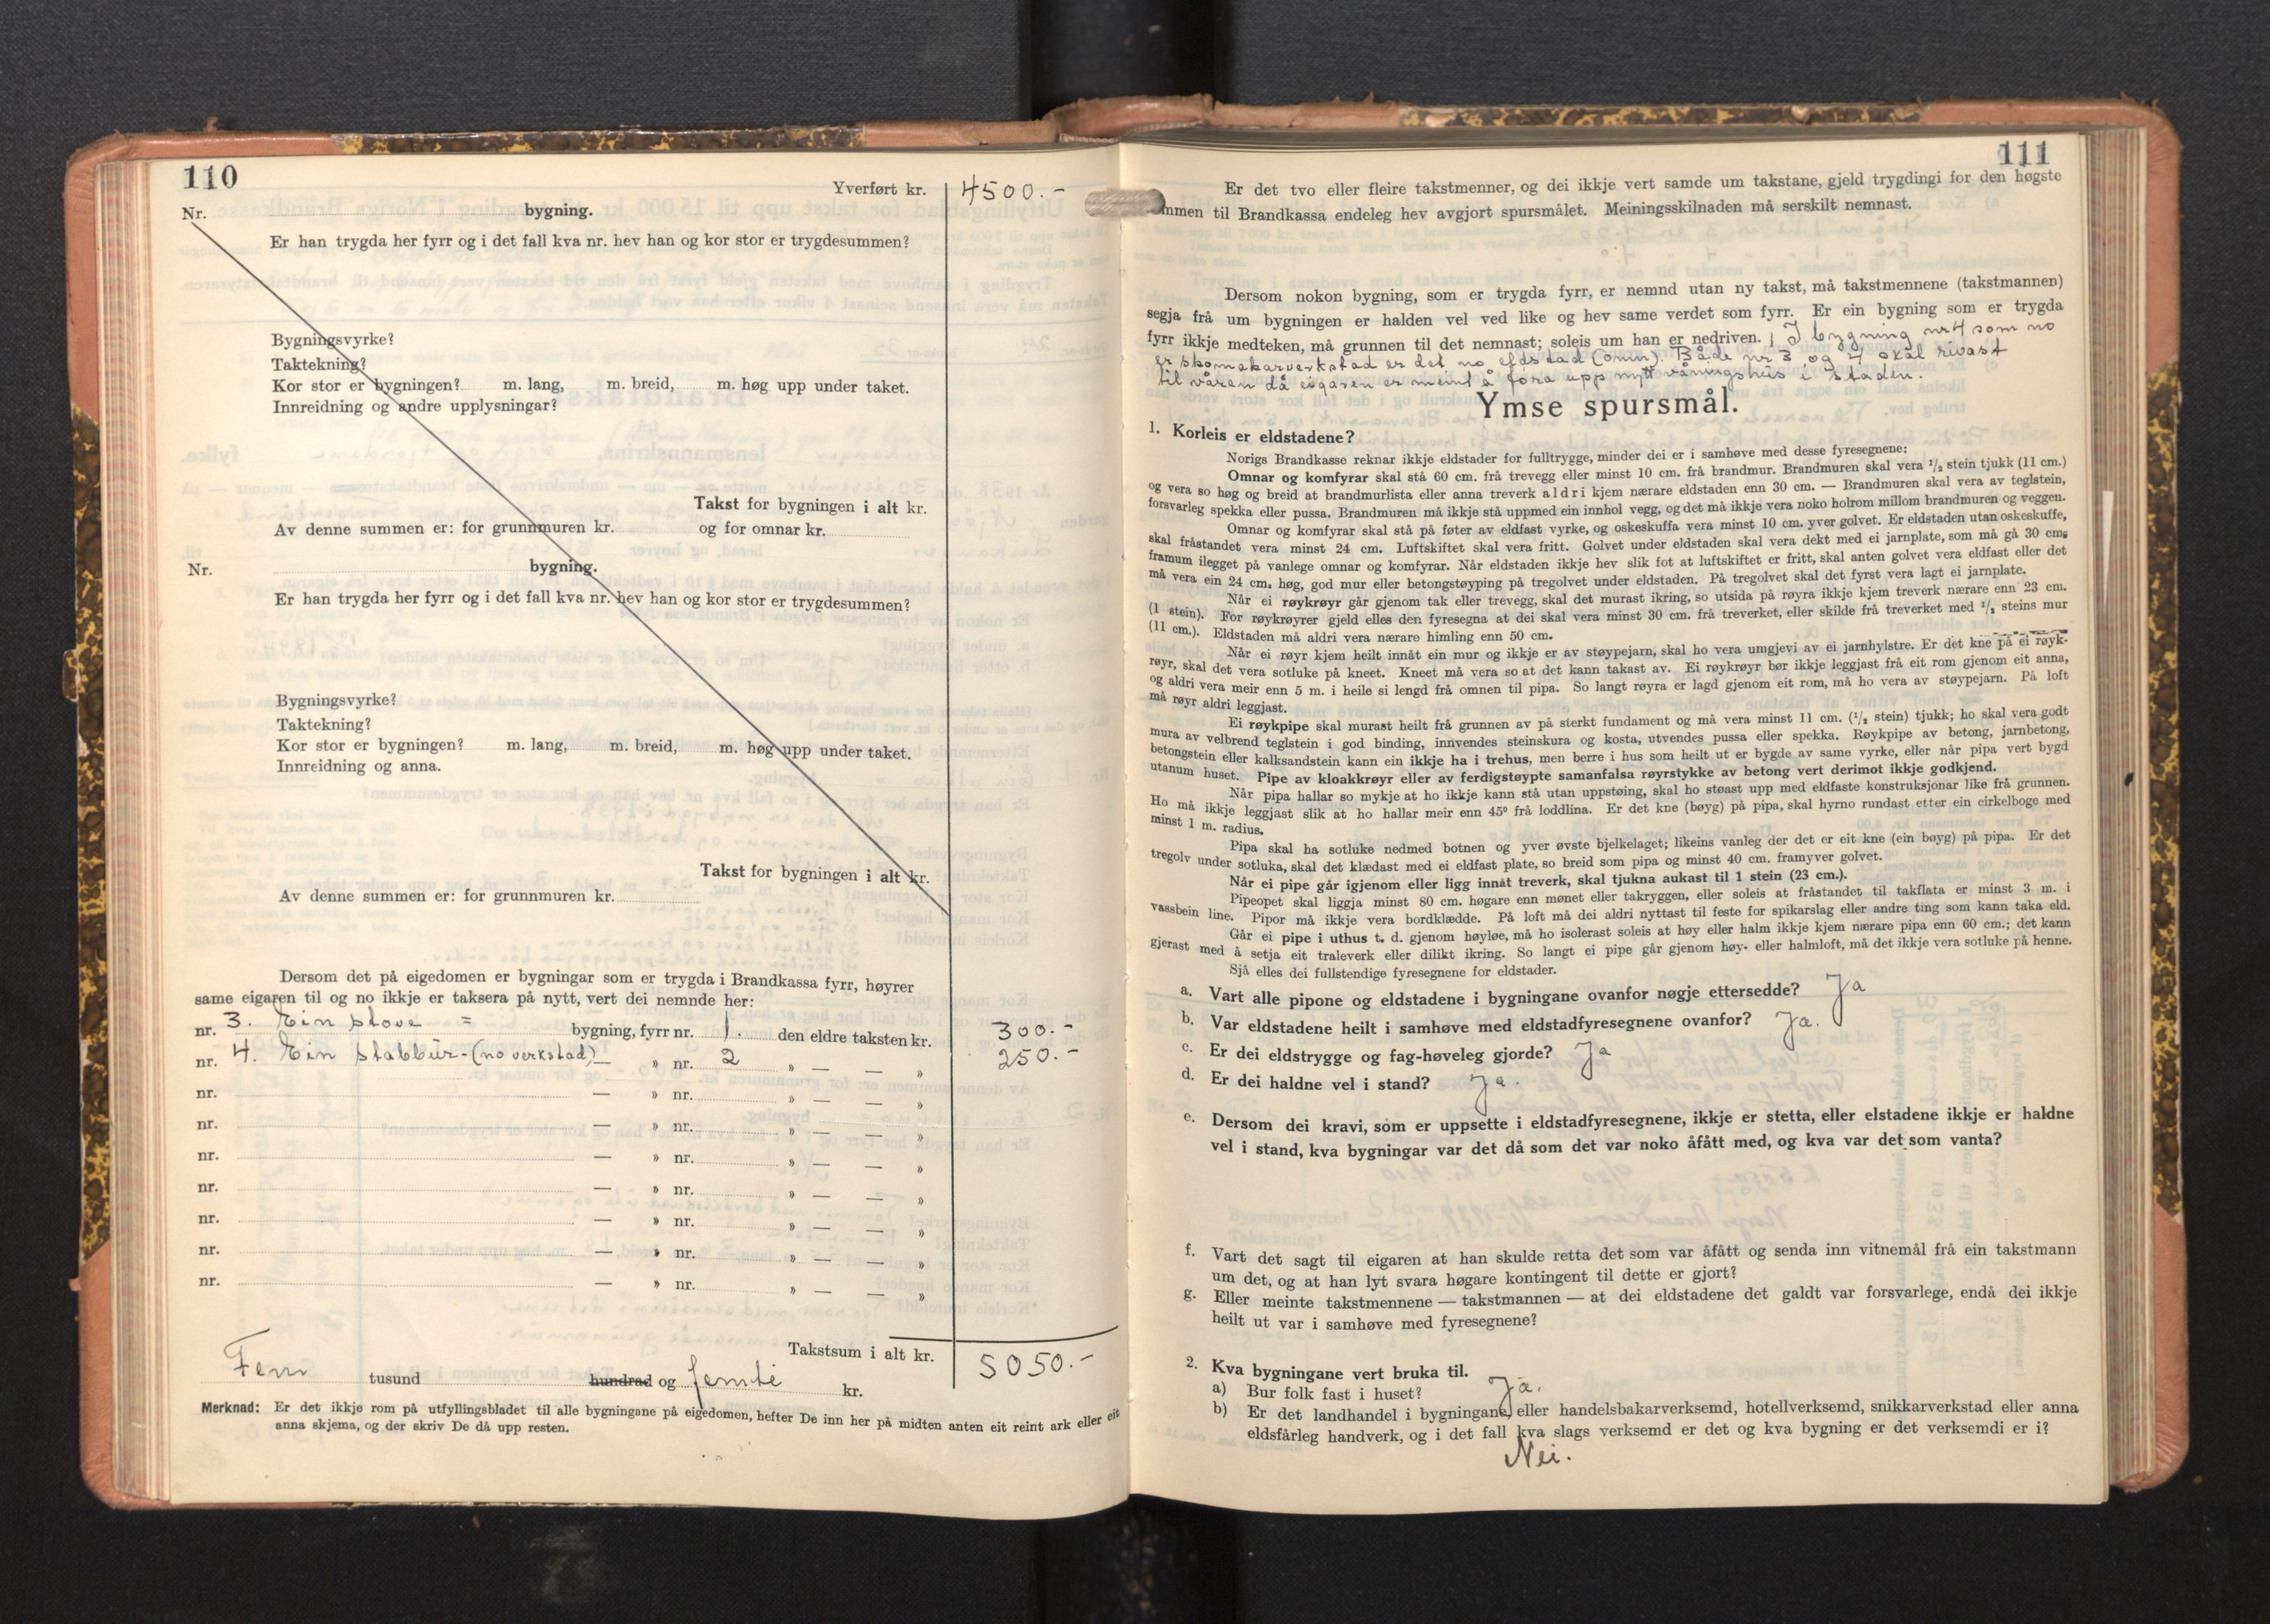 110
Yverført kr. 4500.-
Nr. bygning.
Er han trygda her fyrr og i det fall kva nr. hev han og kor stor er trygdesummen?
Bygningsvyrke?
Taktekning?
Kor stor er bygningen? m. lang, m. breid, m. høg upp under taket.
Innreidning og andre upplysningar?
Takst for bygningen i alt kr.
Av denne summen er: for grunnmuren kr. og for omnar kr.
Nr. bygning.
Er han trygda her fyrr og i det fall kva nr. hev han og kor stor er trygdesummen?
Bygningsvyrke?
Taktekning?
Kor stor er bygningen? m. lang, m. breid, m. høg upp under taket.
Innreidning og anna.
Takst for bygningen i alt kr.
Av denne summen er: for grunnmuren kr.
Dersom det på eigedomen er bygningar som er trygda i Brandkassa fyrr, høyrer
same eigaren til og no ikkje er taksera på nytt, vert dei nemnde her:
nr. 3. Ein stove = bygning, fyrr nr. 1. den eldre taksten kr. 300.-
nr. 4. Ein stabbur-(no verkstad) — » nr. 2 » — — » 250.-
nr. — » nr. » — — »
nr. — » nr. » — — »
nr. — » nr. » — — »
nr. — » nr. » — — »
nr. — » nr. » — — »
nr. — » nr. » — — »
nr. — » nr. » — — »
Takstsum i alt kr. 5050.-
Fem tusund hundrad og femti kr.
Merknad: Er det ikkje rom på utfyllingsbladet til alle bygningane på eigedomen, hefter De inn her på midten anten eit reint ark eller eit
anna skjema, og der skriv De då upp resten.
111
Er det tvo eller fleire takstmenner, og dei ikkje vert samde um takstane, gjeld trygdingi for den høgste
mmen til Brandkassa endeleg hev avgjort spursmålet. Meiningsskilnaden må serskilt nemnast.
Dersom nokon bygning, som er trygda fyrr, er nemnd utan ny takst, må takstmennene (takstmannen)
segja frå um bygningen er halden vel ved like og hev same verdet som fyrr. Er ein bygning som er trygda
fyrr ikkje medteken, må grunnen til det nemnast; soleis um han er nedriven. / I bygning nr 4 som no
er skomakarverkstad er det no eldstad (omn). Både nr 3 og 4 skal rivast
til våren då eigaren er meint å föra upp nytt våningshus i staden.
Ymse spursmål.
1. Korleis er eldstadene?
Norigs Brandkasse reknar ikkje eldstader for fulltrygge, minder dei er i samhøve med desse fyresegnene:
Omnar og komfyrar skal stå 60 cm. frå trevegg eller minst 10 cm. frå brandmur. Brandmuren skal vera ½ stein tjukk (11 cm.)
og vera so høg og breid at brandmurlista eller anna treverk aldri kjem nærare eldstaden enn 30 cm. — Brandmuren skal vera av teglstein,
forsvarleg spekka eller pussa. Brandmuren må ikkje stå uppmed ein innhol vegg, og det må ikkje vera noko holrom millom brandmuren og veggen.
Omnar og komfyrar skal stå på føter av eldfast vyrke, og oskeskuffa vera minst 10 cm. yver golvet. Er eldstaden utan oskeskuffe,
skal fråstandet vera minst 24 cm. Luftskiftet skal vera fritt. Golvet under eldstaden skal vera dekt med ei jarnplate, som må gå 30 cm.
framum ilegget på vanlege omnar og komfyrar. Når eldstaden ikkje hev slik fot at luftskiftet er fritt, skal anten golvet vera eldfast eller det
må vera ein 24 cm. høg, god mur eller betongstøyping på tregolvet under eldstaden. På tregolvet skal det fyrst vera lagt ei jarnplate.
Når ei røykrøyr går gjenom tak eller trevegg, skal det murast ikring, so utsida på røyra ikkje kjem treverk nærare enn 23 cm.
(1 stein). For røykrøyrer gjeld elles den fyresegna at dei skal vera minst 30 cm. frå treverket, eller skilde frå treverket med ½ steins mur
(11 cm.). Eldstaden må aldri vera nærare himling enn 50 cm.
Når ei røyr kjem heilt innåt ein mur og ikkje er av støypejarn, skal ho vera umgjevi av ei jarnhylstre. Er det kne på ei røyk-
røyr, skal det vera sotluke på kneet. Kneet må vera so at det kann takast av. Ei røykrøyr bør ikkje leggjast frå eit rom gjenom eit anna,
og aldri vera meir enn 5 m. i heile si lengd frå omnen til pipa. So langt røyra er lagd gjenom eit rom, må ho vera av støypejarn. På loft
må røyr aldri leggjast.
Ei røykpipe skal murast heilt frå grunnen av på sterkt fundament og må vera minst 11 cm. (½ stein) tjukk; ho skal vera godt
mura av velbrend teglstein i god binding, innvendes steinskura og kosta, utvendes pussa eller spekka. Røykpipe av betong, jarnbetong,
betongstein eller kalksandstein kann ein ikkje ha i trehus, men berre i hus som heilt ut er bygde av same vyrke, eller når pipa vert bygd
utanum huset. Pipe av kloakkrøyr eller av ferdigstøypte samanfalsa røyrstykke av betong vert derimot ikkje godkjend.
Når pipa hallar so mykje at ho ikkje kann stå utan uppstøing, skal ho støast upp med eldfaste konstruksjonar like frå grunnen.
Ho må ikkje leggjast slik at ho hallar meir enn 45° frå loddlina. Er det kne (bøyg) på pipa, skal hyrno rundast etter ein cirkelboge med
minst 1 m. radius.
Pipa skal ha sotluke nedmed botnen og yver øvste bjelkelaget; likeins vanleg der det er eit kne (ein bøyg) på pipa. Er det
tregolv under sotluka, skal det klædast med ei eldfast plate, so breid som pipa og minst 40 cm. framyver golvet.
Når ei pipe går igjenom eller ligg innåt treverk, skal tjukna aukast til 1 stein (23 cm.).
Pipeopet skal liggja minst 80 cm. høgare enn mønet eller takryggen, eller soleis at fråstandet til takflata er minst 3 m. i
vassbein line. Pipor må ikkje vera bordklædde. På loft må dei aldri nyttast til feste for spikarslag eller andre ting som kann taka eld.
Går ei pipe i uthus t. d. gjenom høyløe, må ho isolerast soleis at høy eller halm ikkje kjem nærare pipa enn 60 cm.; det kann
gjerast med å setja eit traleverk eller dilikt ikring. So langt ei pipe går gjenom høy- eller halmloft, må det ikkje vera sotluke på henne.
Sjå elles dei fullstendige fyresegnene for eldstader.
a. Vart alle pipone og eldstadene i bygningane ovanfor nøgje ettersedde? Ja
b. Var eldstadene heilt i samhøve med eldstadfyresegnene ovanfor? Ja.
c. Er dei eldstrygge og fag-høveleg gjorde? Ja
d. Er dei haldne vel i stand? Ja.
e. Dersom dei kravi, som er uppsette i eldstadfyresegnene, ikkje er stetta, eller elstadene ikkje er haldne
vel i stand, kva bygningar var det då som det var noko åfått med, og kva var det som vanta?
f. Vart det sagt til eigaren at han skulde retta det som var åfått og senda inn vitnemål frå ein takstmann
um det, og at han lyt svara høgare kontingent til dette er gjort?
g. Eller meinte takstmennene — takstmannen — at dei eldstadene det galdt var forsvarlege, endå dei ikkje
heilt ut var i samhøve med fyresegnene?
2. Kva bygningane vert bruka til.
a) Bur folk fast i huset? Ja.
b) Er det landhandel i bygningane, eller handelsbakarverksemd, hotellverksemd, snikkarverkstad eller anna
eldsfårleg handverk, og i det fall kva slags verksemd er det og kva bygning er det verksemdi er i?
Nei.